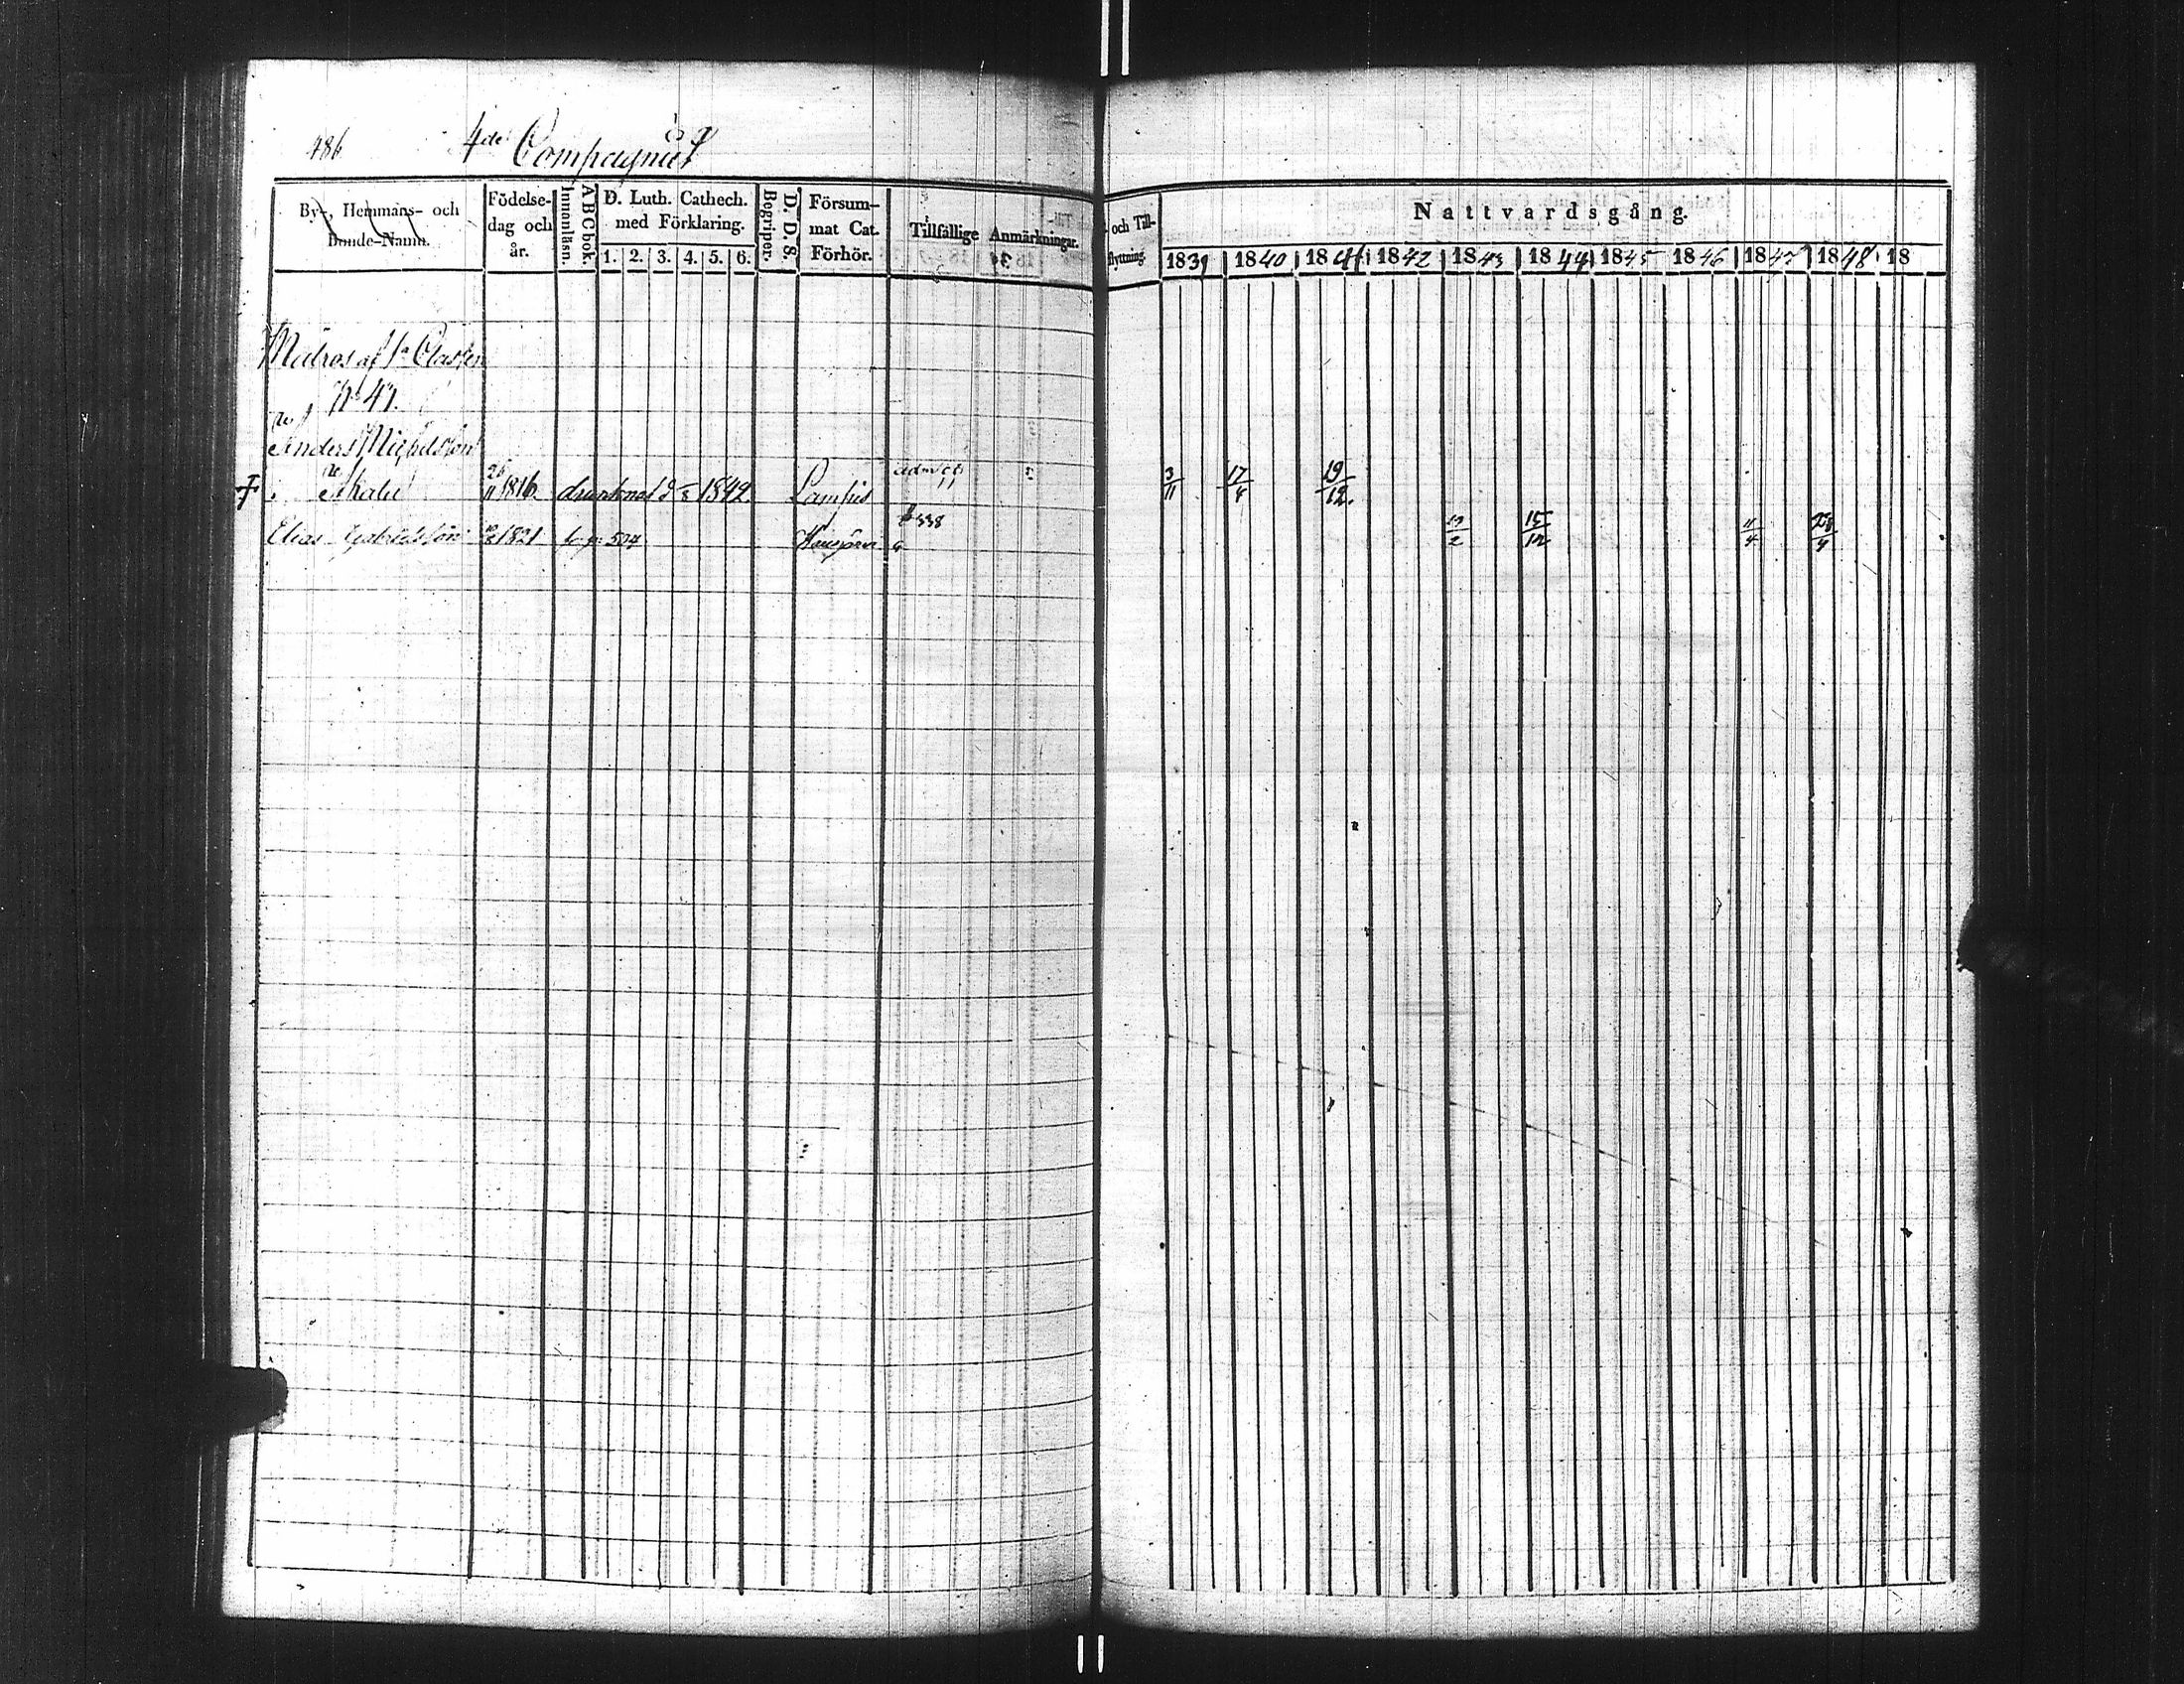 486 4de Compagniet
By-, Hemmans- och Bonde-Namn.
Födelse-dag och år.
ABC bok. Innanläsn.
D. Luth. Cathech. med Förklaring.
1. 2. 3. 4. 5. 6.
D. D. S. Begriper.
Försum-mat Cat. Förhör.
Tillfällige Anmärkningar.
och Till-
flyttning.
Nattvardsgång.
1839 1840 1841 1842 1843 1844 1845 1846 1847 1848 18
Matros af 1a Classen
No 47.
Anders Michelsson
26/11 1816. drunknad 1842 3/11 17/4 19/12.
Elias Gabrielsson 1821 504 338 2 15/12 11/4 28/4